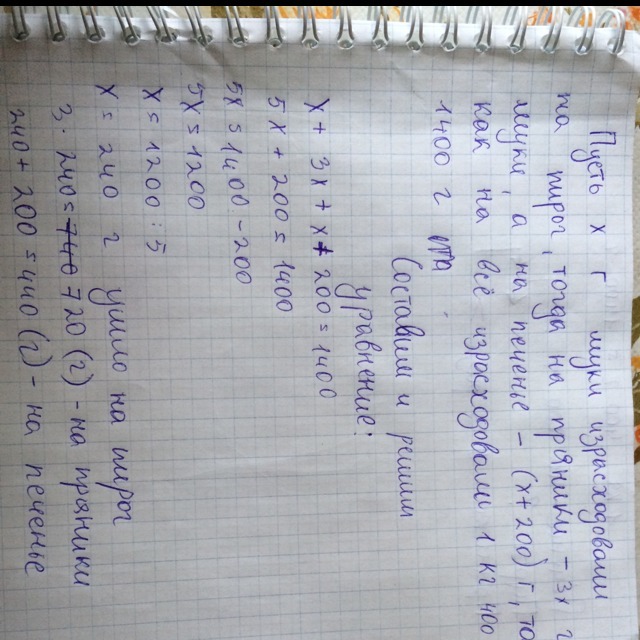 Пусть х г муки израсходовали
на пирог, тогда на пряники - 3х г
муки, а на печенье - (х+200) г, то
как на всё израсходовали 1 кг 400
1400 г
Составим и решим
уравнение:
х + 3х + х + 200 = 1400
5х + 200 = 1400
5х = 1400 - 200
5х = 1200
х = 1200 : 5
х = 240 г ушло на пирог
3 · 240 = 720 (г) - на пряники
240 + 200 = 440 (г) - на печение